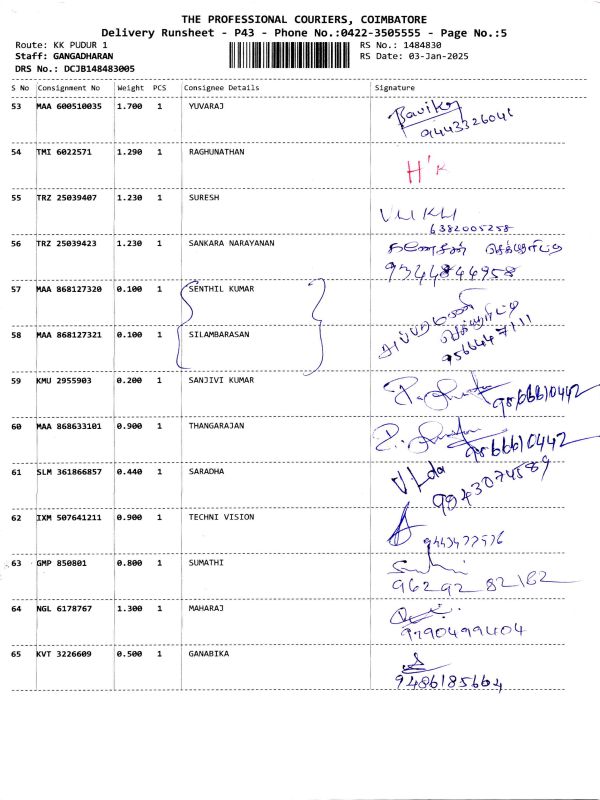 THE PROFESSIONAL COURIERS, COIMBATORE
Delivery Runsheet - P43 - Phone No.:0422-3505555 - Page No.:5
Route: KK PUDUR 1 RS No.: 1484830
Staff: GANGADHARAN RS Date: 03-Jan-2025
DRS No.: DCJB148483005
S No Consignment No Weight PCS Consignee Details Signature
53 MAA 600510035 1.700 1 YUVARAJ
9443326041
54 TMI 6022571 1.290 1 RAGHUNATHAN
55 TRZ 25039407 1.230 1 SURESH
6382005258
56 TRZ 25039423 1.230 1 SANKARA NARAYANAN
9344844958
57 MAA 868127320 0.100 1 SENTHIL KUMAR
58 MAA 868127321 0.100 1 SILAMBARASAN
9566447111
59 KMU 2955903 0.200 1 SANJIVI KUMAR
9866610442
60 MAA 868633101 0.900 1 THANGARAJAN
9866610442
61 SLM 361866857 0.440 1 SARADHA
9043074589
62 IXM 507641211 0.900 1 TECHNI VISION
63 GMP 850801 0.800 1 SUMATHI
9629282182
64 NGL 6178767 1.300 1 MAHARAJ
9790499404
65 KVT 3226609 0.500 1 GANABIKA
9486185664